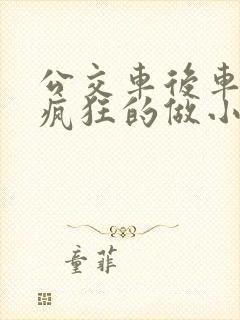 公交車後車
瘋狂的做小
童菲